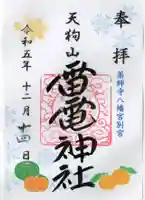 奉拝
薬師寺八幡宮別宮
天狗山
雷電神社
令和五年十二月十四日